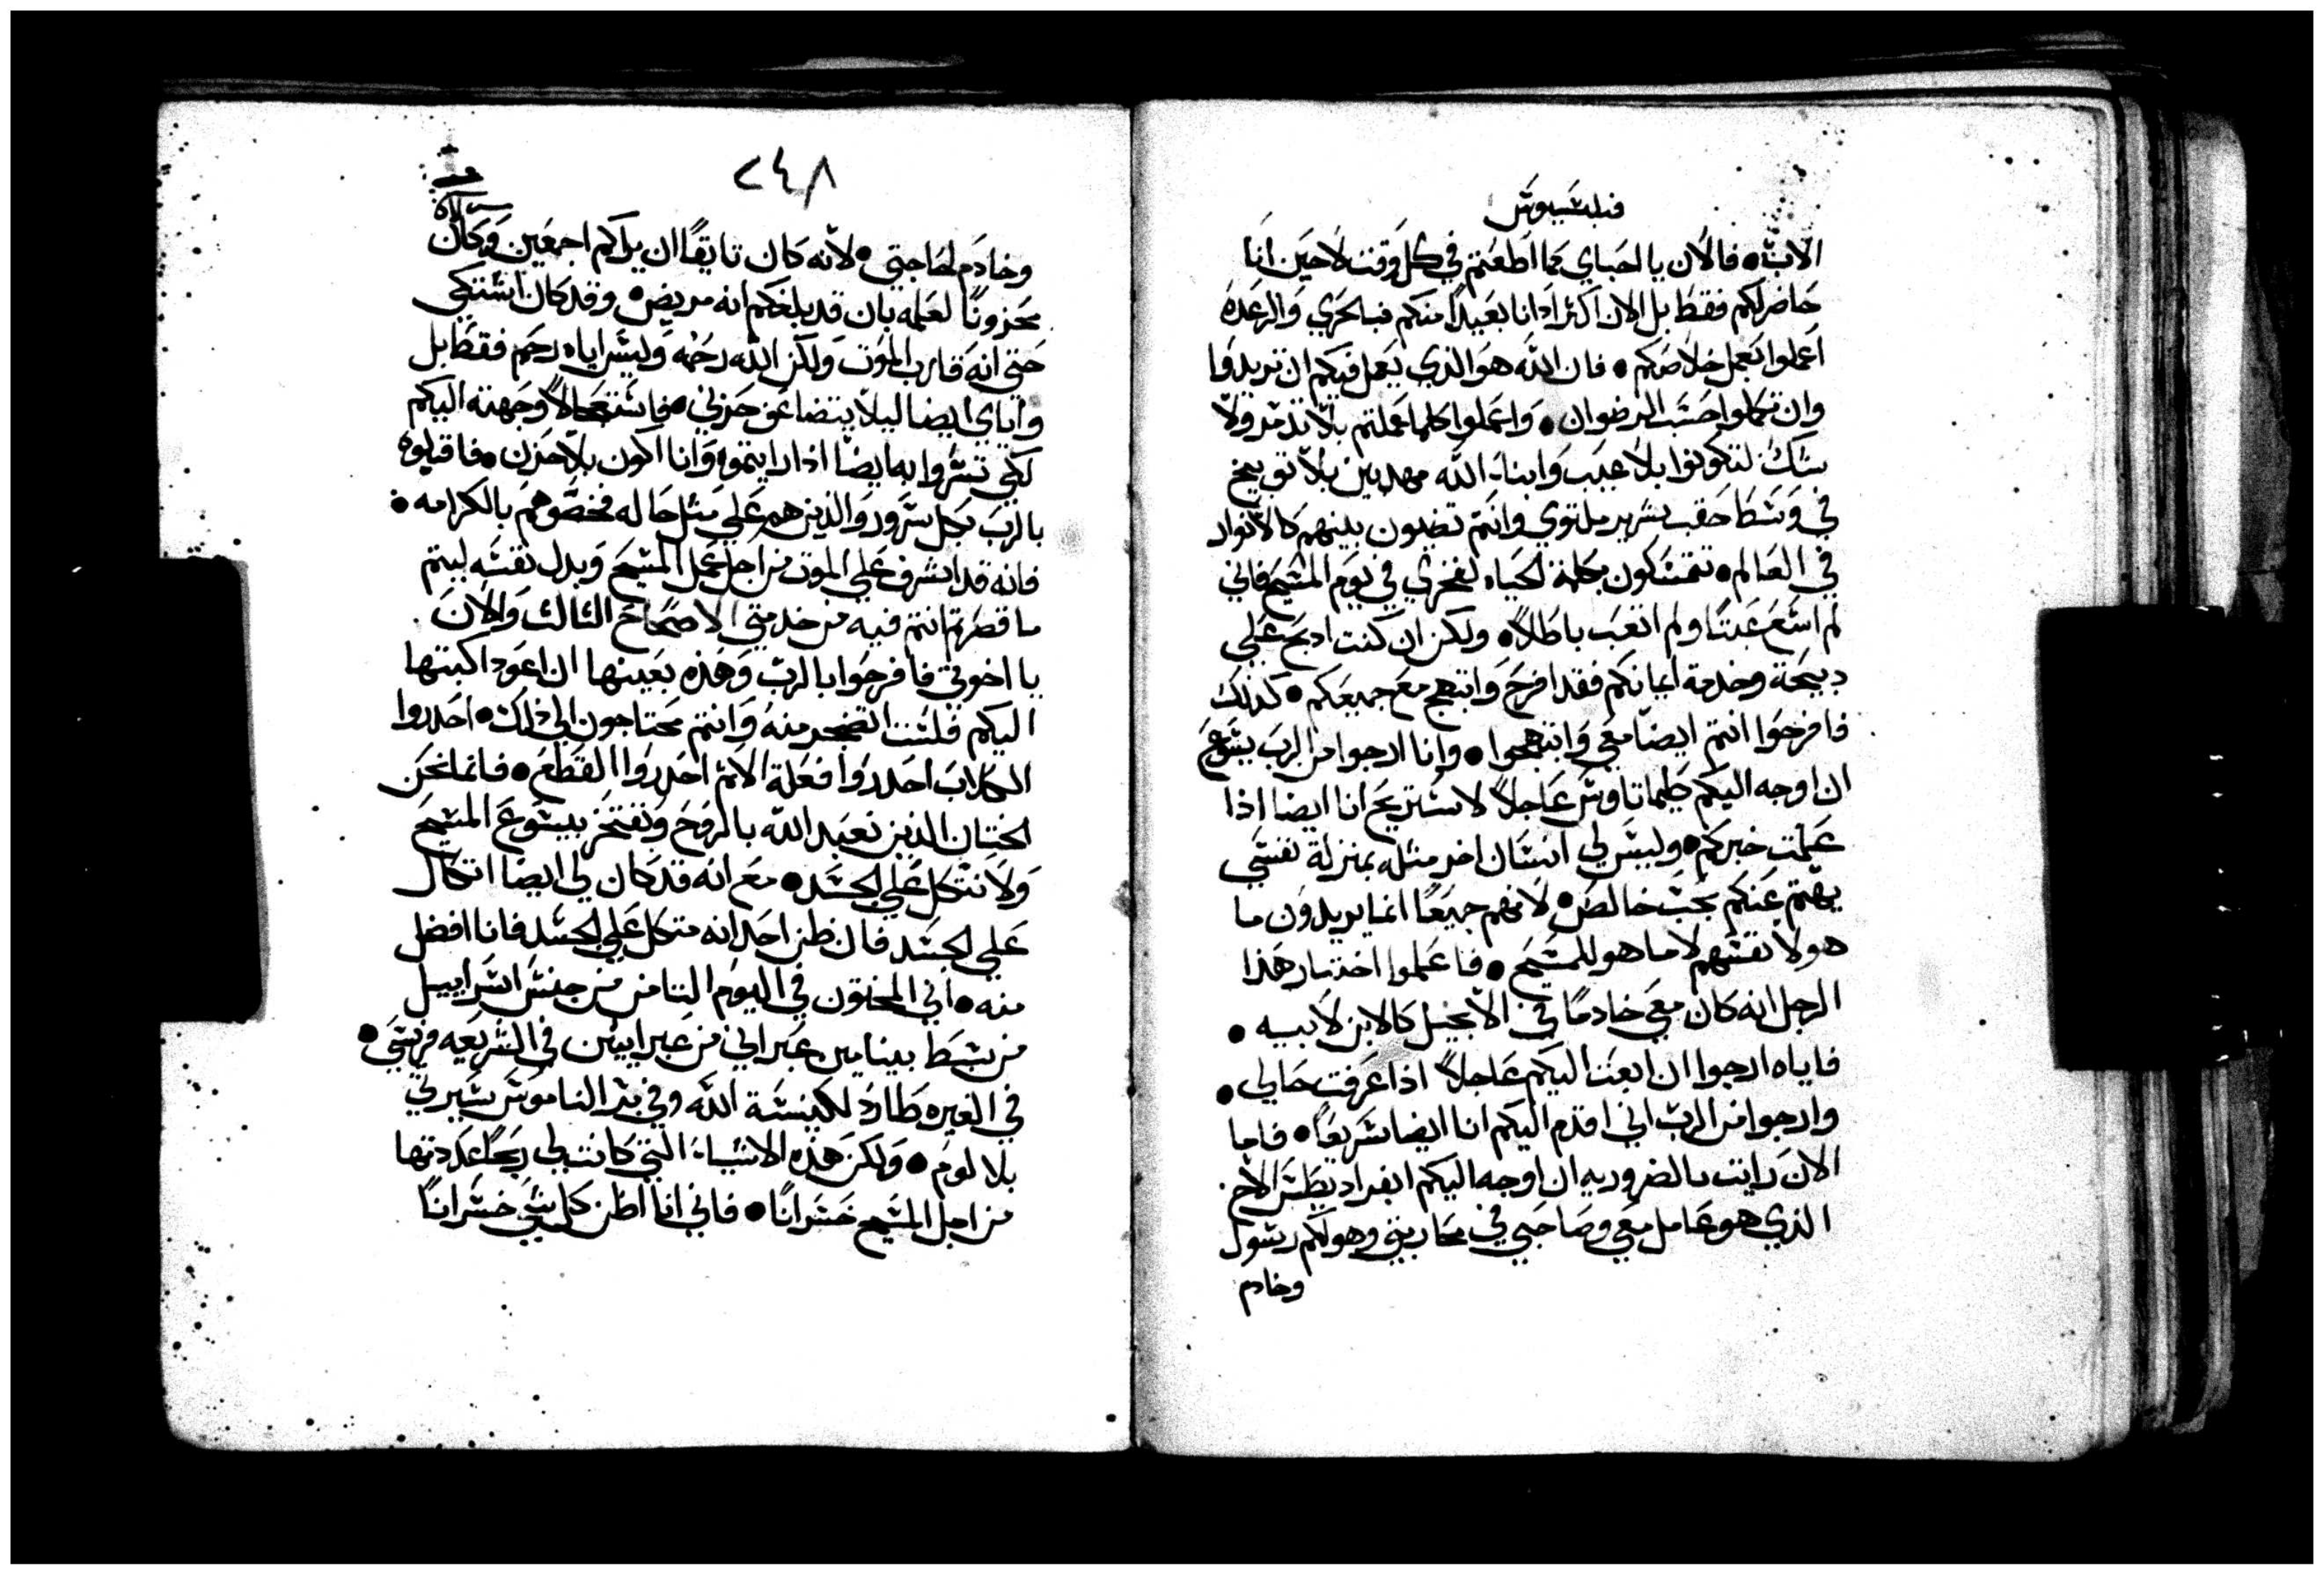 فيليبسيوس
الاب • فالان يا احباي كما اطعتم في كل وقت لا حين انا
حاضر لكم فقط بل الان اكثر اذ انا بعيدا منكم فبالحري والرعده
اعملوا بعمل خلاصكم • فان الله هو الذي يعمل فيكم ان تريدوا
وان تكملوا حسب الرضوان • واعملوا كلما عملتم بلا تذمر ولا
شك لتكونوا بلا عيب وابناء الله مهدبين بلا توبيخ
في وسط حقب شرير ملتوي وانتم تضيون بينهم كالانوار
في العالم • تتمسكون بكلمة الحياه لفخري في يوم المسيح فاني
لم اسع عبثا ولم اتعب باطلا • ولكن ان كنت ادبح علي
دبيحة وخدمة ايمانكم فقد افرح وابتهج مع جميعكم • كذلك
فافرحوا انتم ايضا معي وابتهجوا • وانا ارجوا من الرب يسوع
ان اوجه اليكم طيماتاوس عاجلا لاستريح انا ايضا اذا
علمت خبركم • وليس لي انسان اخر مثله بمنزلة نفسي
يهتم عنكم بحب خالص • لانهم جميعا انما يريدون ما
هو لانفسهم لا ما هو للمسيح • فاعلموا اختبار هذا
الرجل انه كان معي خادما في الانجيل كالابن لابيه •
فاياه ارجوا ان ابعث اليكم عاجلا اذا عرفت حالي •
وارجوا من الرب اني اقدم اليكم انا ايضا سريعا • فاما
الان رايت بالضروريه ان اوجه اليكم ابفراديطس الاخ
الذي هو عامل معي وصاحبي في محاربتي وهو لكم رسول
وخادم
٢٤٨
وخادم لحاجتي • لانه كان تايقا ان يراكم اجمعين وكان
محزونا لعلمه بان قد بلغكم انه مريض • وقد كان اشتكي
حتي انه قارب الموت ولكن الله رحمه وليس اياه رحم فقط بل
واياي ايضا ليلا يتضاعف حزني • فاستعجالا وجهته اليكم
لكي تسروا به ايضا اذا رايتموه وانا اكون بلا حزن • فاقبلوه
بالرب بكل سرور والذين هم علي مثل حاله فخصوهم بالكرامه •
فانه قد اشرف علي الموت من اجل عمل المسيح وبدل نفسه ليتم
ما قصرتم انتم فيه من خدمتي الاصحاح الثالث والان
يا اخوتي فافرحوا بالرب وهذه بعينها ان اعود اكتبها
اليكم فلست اتضجر منه وانتم محتاجون الي ذلك • احدروا
الكلاب احدروا فعلة الاثم احدروا القطع • فانما نحن
الختان الذين نعبد الله بالروح ونفتخر بيسوع المسيح
ولا نتكل علي الجسد • مع انه قد كان لي ايضا اتكال
علي الجسد فان ظن احد انه متكل علي الجسد فانا افضل
منه • اني المختون في اليوم التامن من جنس اسراييل
من سبط بينامين عبراني من عبرانيين في الشريعه فريسي •
في الغيره طارد لكنيسة الله وفي بر الناموس سيرتي
بلا لوم • ولكن هذه الاشياء التي كانت لي ربحا عددتها
من اجل المسيح خسرانا • فاني انا اظن كل شي خسرانا